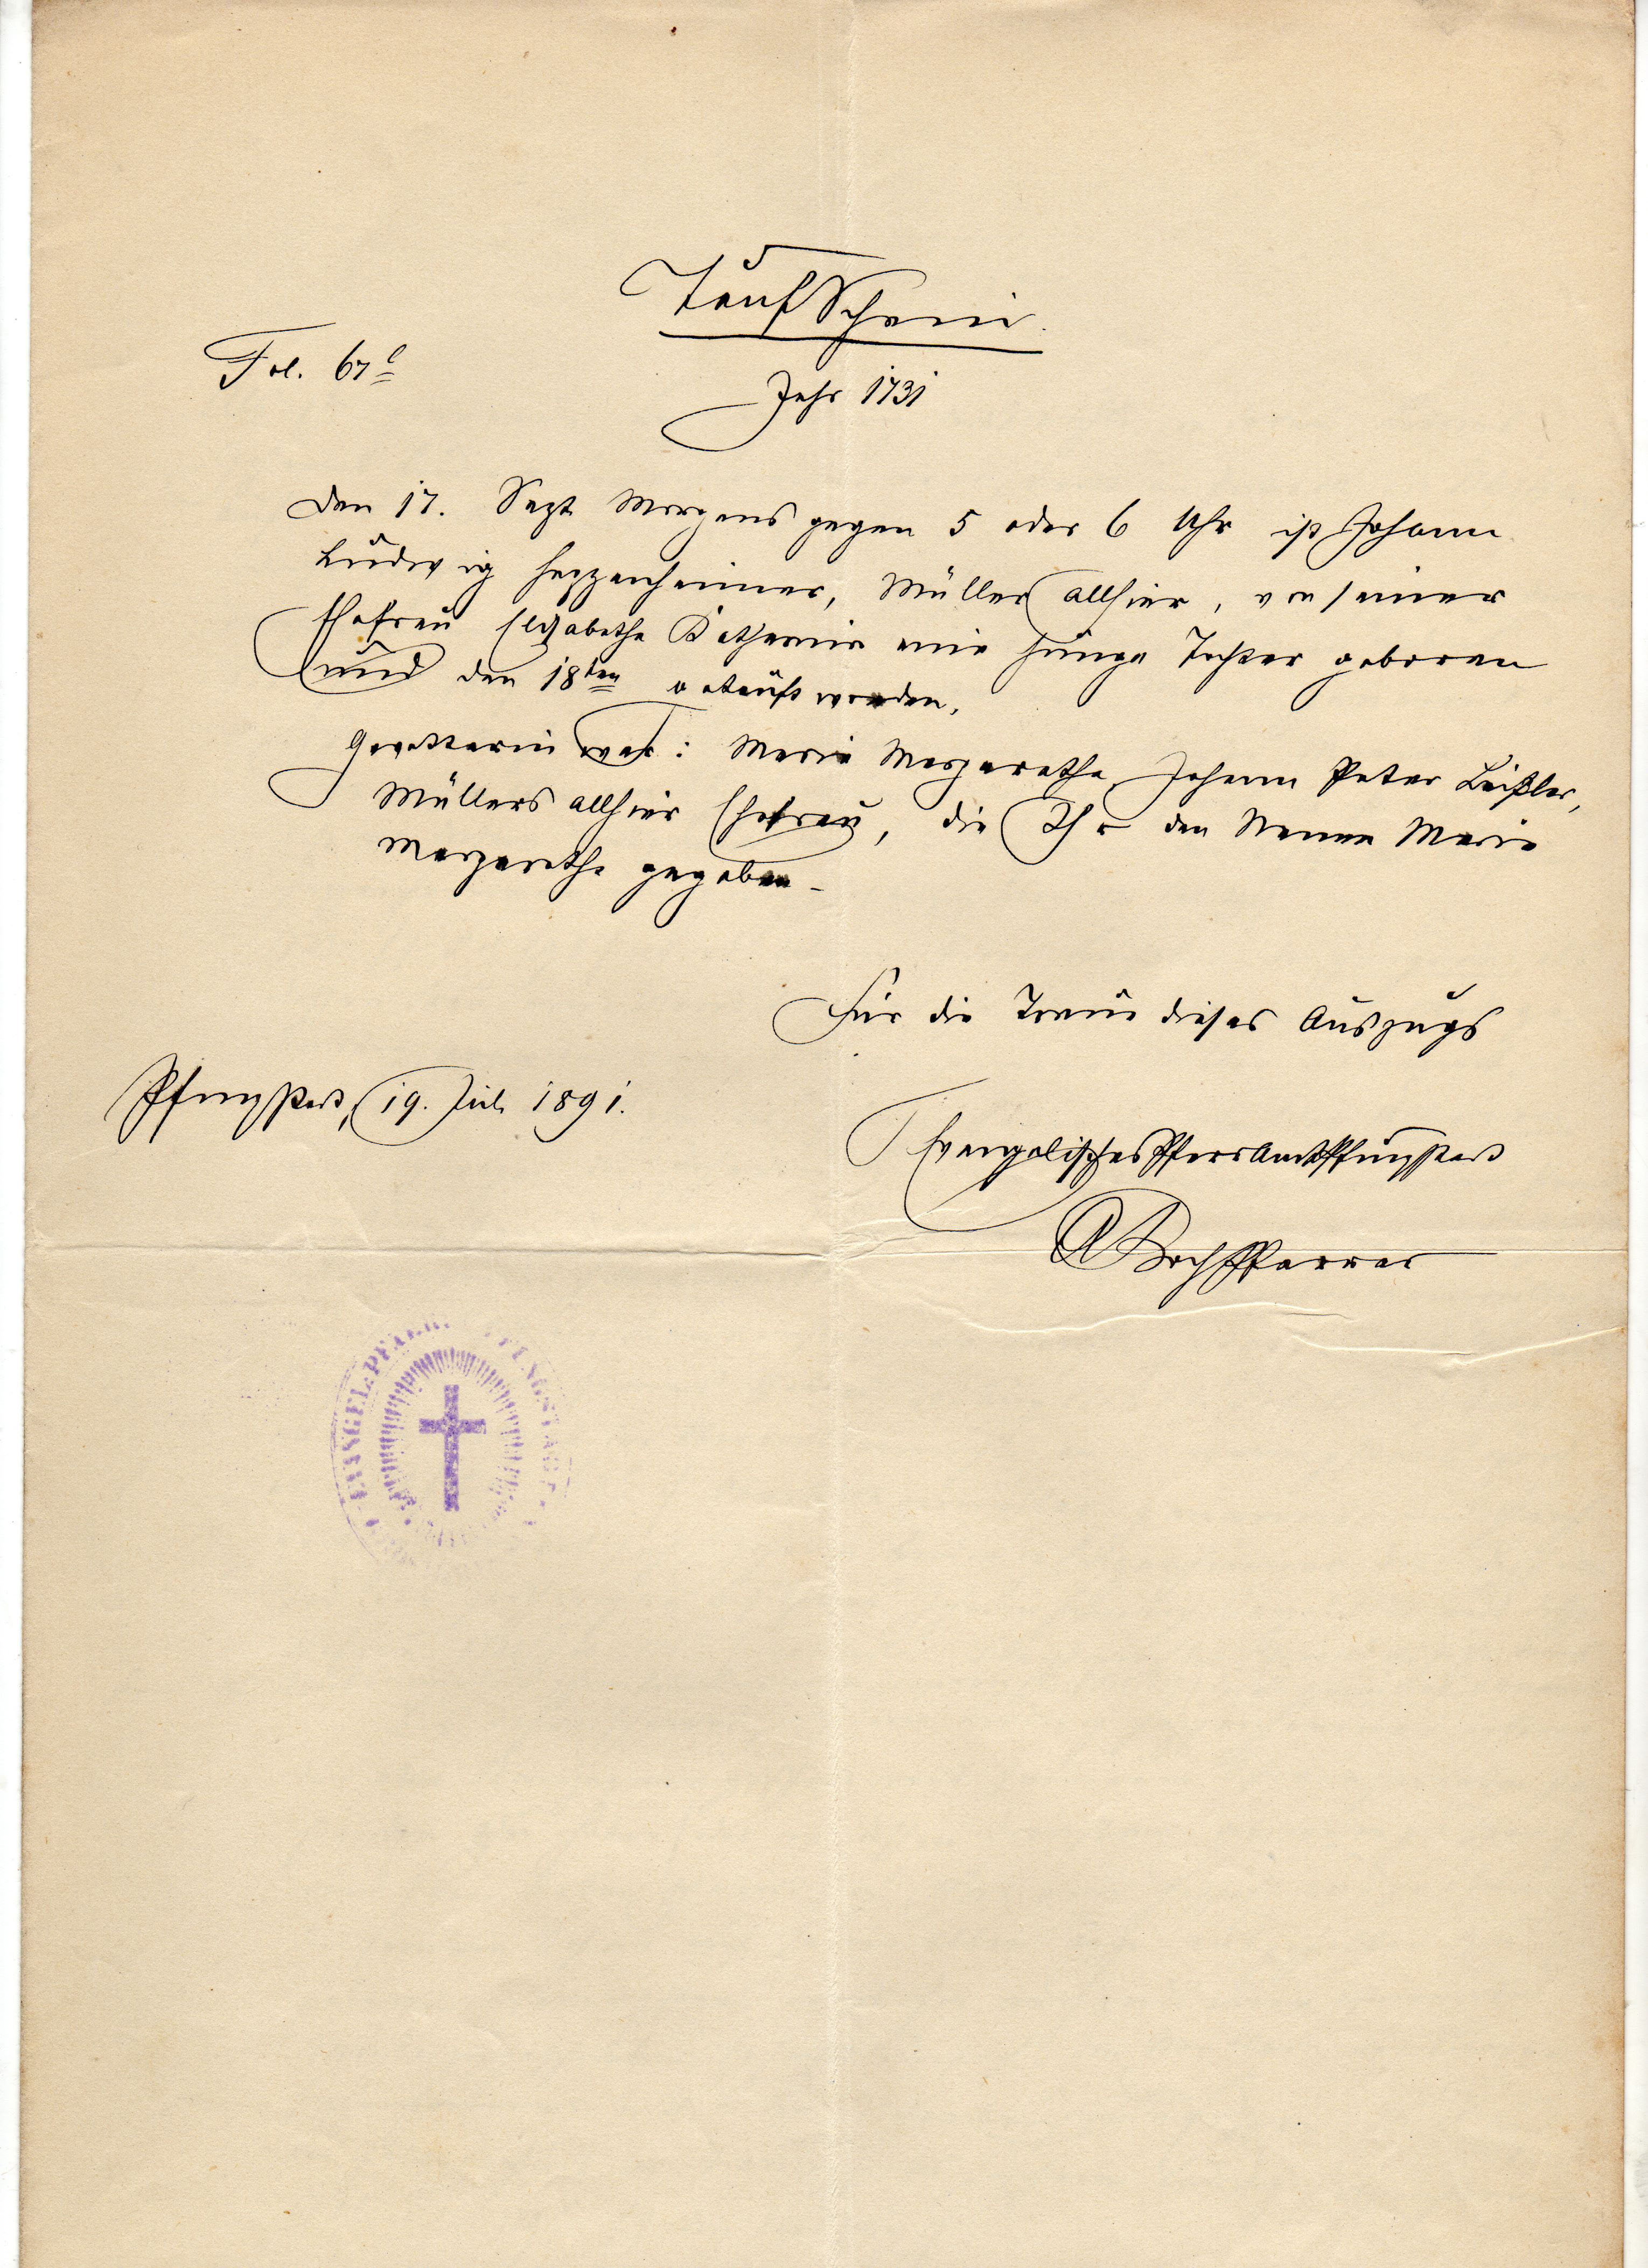 Taufschein.
Fol. 67
Jahr 1731
Den 17. Sept Morgens gegen 5 oder 6 Uhr ist Johann
Ludwig Heppenheimer, Müller allhier, von seiner
Ehefrau Elisabetha Katharina eine junge Tochter geboren
und den 18ten getauft worden.
Gevatterin war: Maria Margaretha, Johann Peter Leißler,
Müllers allhier Ehefrau, die Ihr den Namen Maria
Margaretha gegeben.
Für die Treue dieses Auszugs
Pfungstadt, 19. Juli 1891.
Evangelisches Pfarramt Pfungstadt
Koch Pfarrer
EVANGEL. PFARR PFUNGSTADT